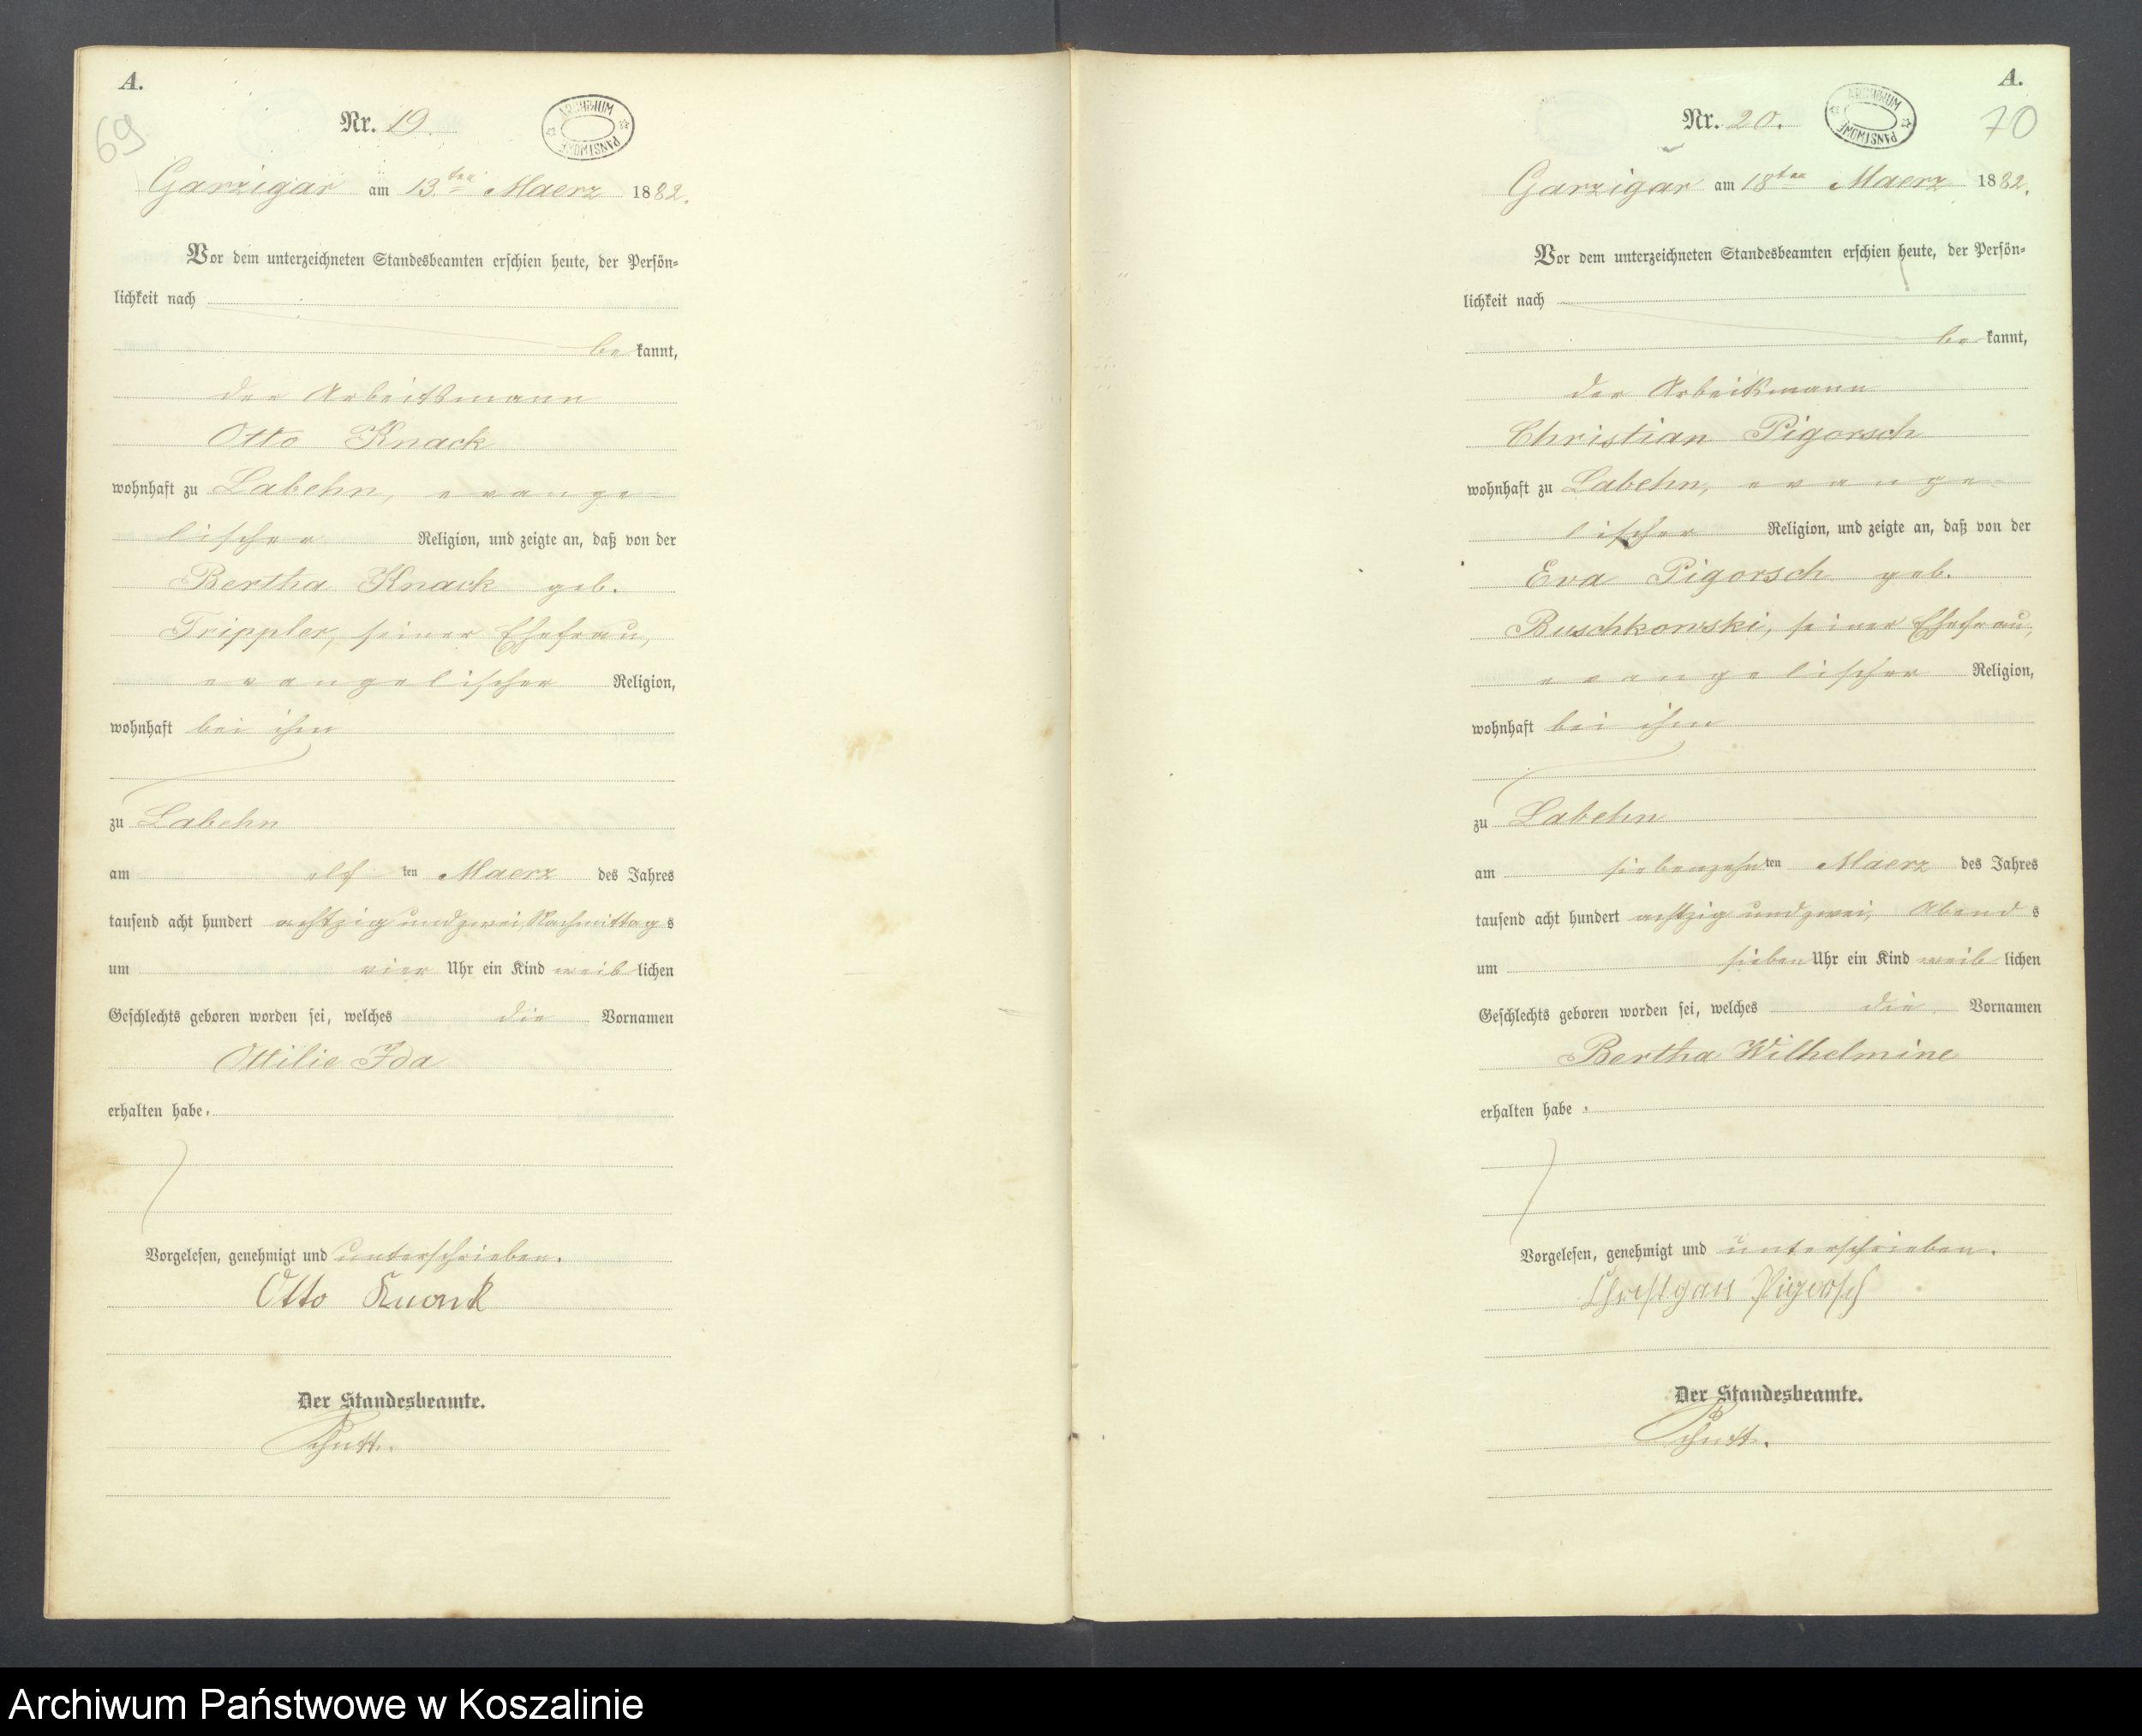 A.
69
Nr. 19.
ARCHIWUM PAŃSTWOWE
Garzigar am 13ten Maerz 1882.
Vor dem unterzeichneten Standesbeamten erschien heute, der Persön-
lichkeit nach
be kannt,
der Arbeitsmann
Otto Knack
wohnhaft zu Labehn, evange-
lischer Religion, und zeigte an, daß von der
Bertha Knack geb.
Trippler, seiner Ehefrau,
evangelischer Religion,
wohnhaft bei ihm
zu Labehn
am elf ten Maerz des Jahres
tausend acht hundert achtzig und zwei, Nachmittag s
um vier Uhr ein Kind weib lichen
Geschlechts geboren worden sei, welches die Vornamen
Ottilie Ida
erhalten habe.
Vorgelesen, genehmigt und unterschrieben.
Otto Knack
Der Standesbeamte.
A.
70
Nr. 20.
ARCHIWUM PAŃSTWOWE
Garzigar am 18ten Maerz 1882.
Vor dem unterzeichneten Standesbeamten erschien heute, der Persön-
lichkeit nach
be kannt,
der Arbeitsmann
Christian Pigorsch
wohnhaft zu Labehn, evange-
lischer Religion, und zeigte an, daß von der
Eva Pigorsch geb.
Buschkowski, seiner Ehefrau,
evangelischer Religion,
wohnhaft bei ihm
zu Labehn
am siebenzehn ten Maerz des Jahres
tausend acht hundert achtzig und zwei, Abend s
um sieben Uhr ein Kind weib lichen
Geschlechts geboren worden sei, welches die Vornamen
Bertha Wilhelmine
erhalten habe.
Vorgelesen, genehmigt und unterschrieben.
Christjan Pigorsch
Der Standesbeamte.
Archiwum Państwowe w Koszalinie